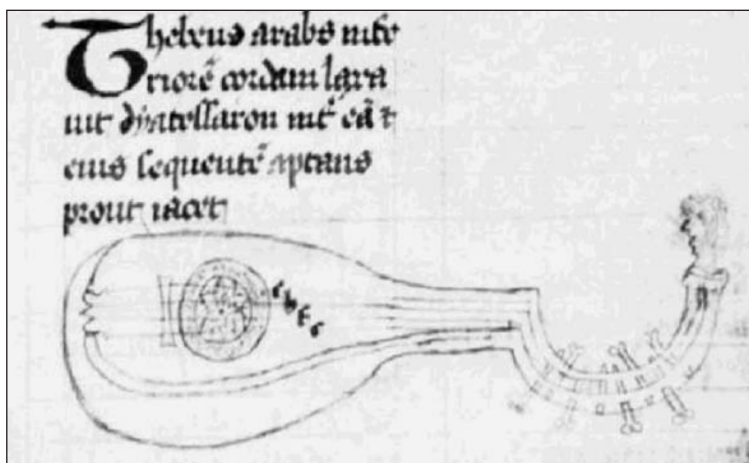 Thebeus arabs infe
riorē cordam
dyatessaron int̄ eā ⁊
eius sequentē aptans
prout iacet